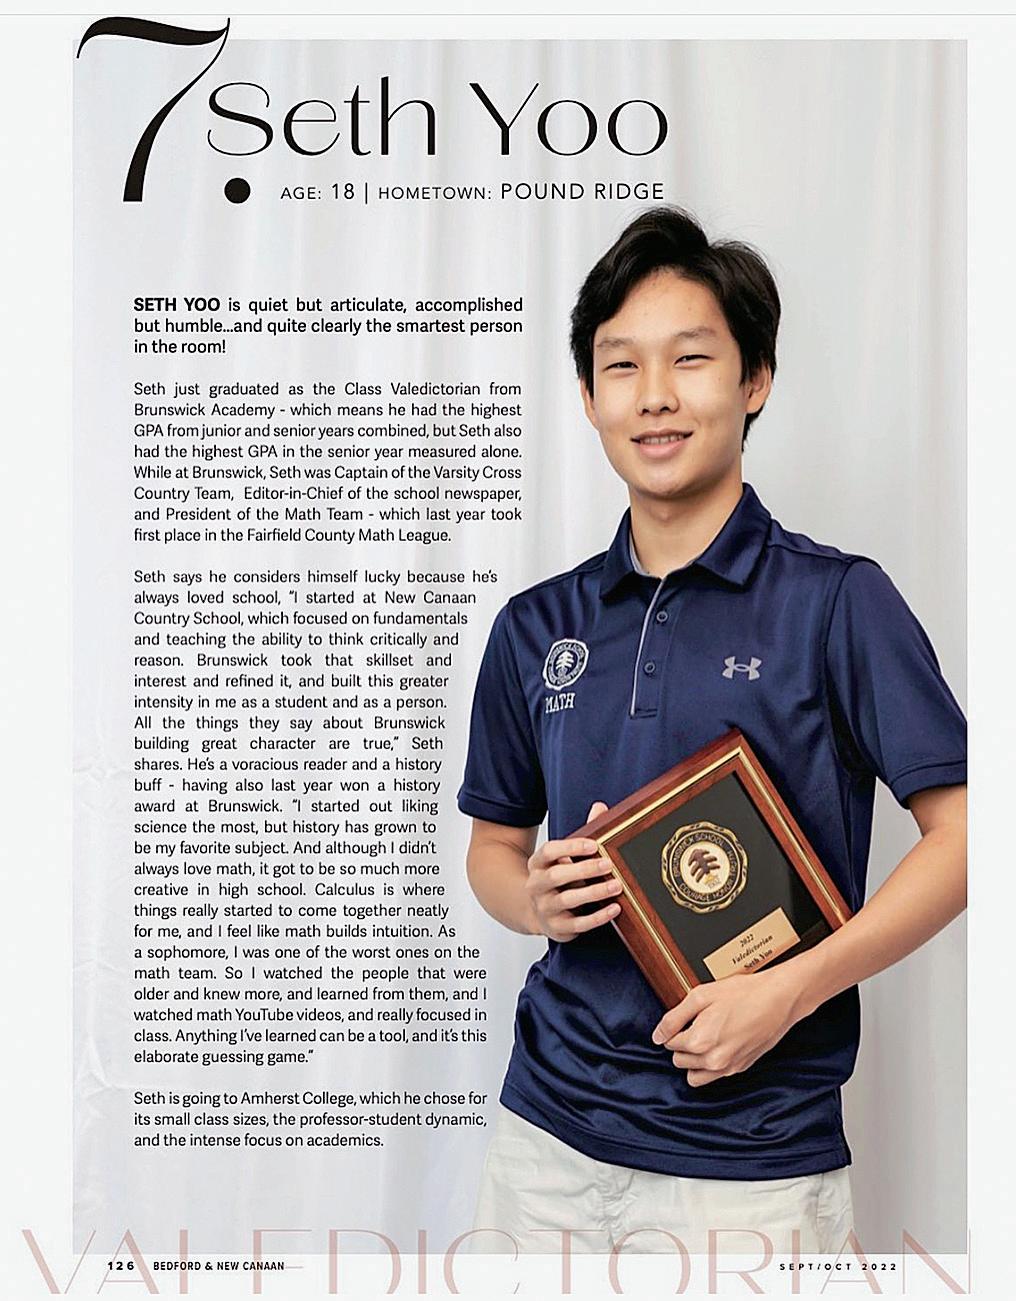 7. Seth Yoo
AGE: 18 | HOMETOWN: POUND RIDGE
SETH YOO is quiet but articulate, accomplished
but humble...and quite clearly the smartest person
in the room!
Seth just graduated as the Class Valedictorian from
Brunswick Academy - which means he had the highest
GPA from junior and senior years combined, but Seth also
had the highest GPA in the senior year measured alone.
While at Brunswick, Seth was Captain of the Varsity Cross
Country Team, Editor-in-Chief of the school newspaper,
and President of the Math Team - which last year took
first place in the Fairfield County Math League.
Seth says he considers himself lucky because he's
always loved school, "I started at New Canaan
Country School, which focused on fundamentals
and teaching the ability to think critically and
reason. Brunswick took that skillset and
interest and refined it, and built this greater
intensity in me as a student and as a person.
All the things they say about Brunswick
building great character are true," Seth
shares. He's a voracious reader and a history
buff - having also last year won a history
award at Brunswick. "I started out liking
science the most, but history has grown to
be my favorite subject. And although I didn't
always love math, it got to be so much more
creative in high school. Calculus is where
things really started to come together neatly
for me, and I feel like math builds intuition. As
a sophomore, I was one of the worst ones on the
math team. So I watched the people that were
older and knew more, and learned from them, and I
watched math YouTube videos, and really focused in
class. Anything I've learned can be a tool, and it's this
elaborate guessing game."
Seth is going to Amherst College, which he chose for
its small class sizes, the professor-student dynamic,
and the intense focus on academics.
MATH
BRUNSWICK SCHOOL
COURAGE HONOR TRUTH
1902
2022
Valedictorian
Seth Yoo
VALEDICTORIAN
126 BEDFORD & NEW CANAAN
SEPT/OCT 2022